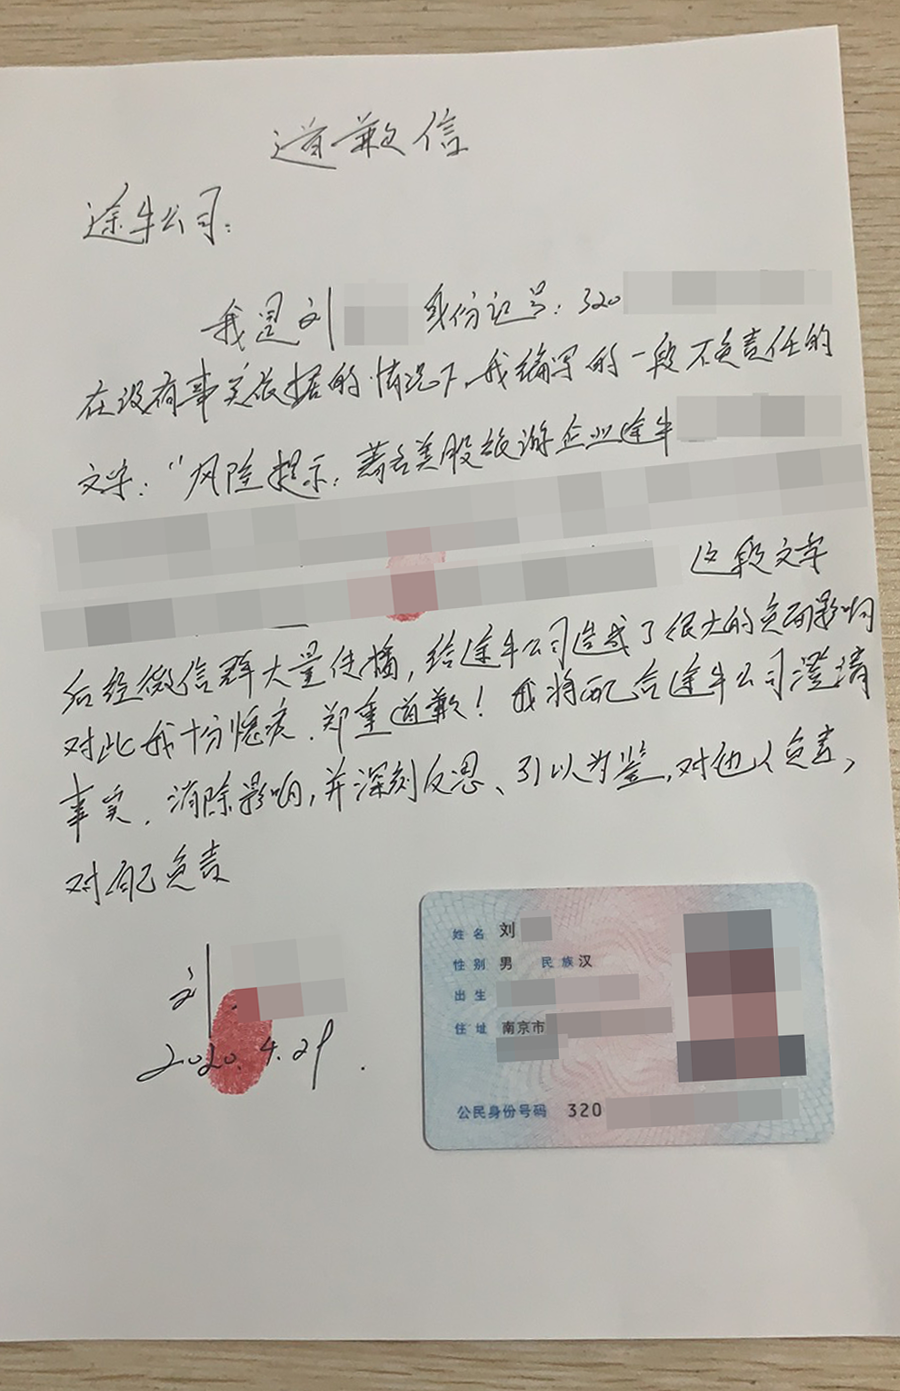 道歉信
途牛公司:
我是刘 身份证号: 320
在没有事实依据的情况下,我编写的一段不负责任的
文字:“风险提示:著名美股旅游企业途牛
这段文字
后经微信群大量传播,给途牛公司造成了很大的负面影响
对此我十分愧疚.郑重道歉!我将配合途牛公司澄清
事实.消除影响,并深刻反思、引以为鉴,对他人负责,
对自己负责
刘
2020.4.29.
姓名 刘
性别 男 民族 汉
出生
住址 南京市
公民身份号码 320